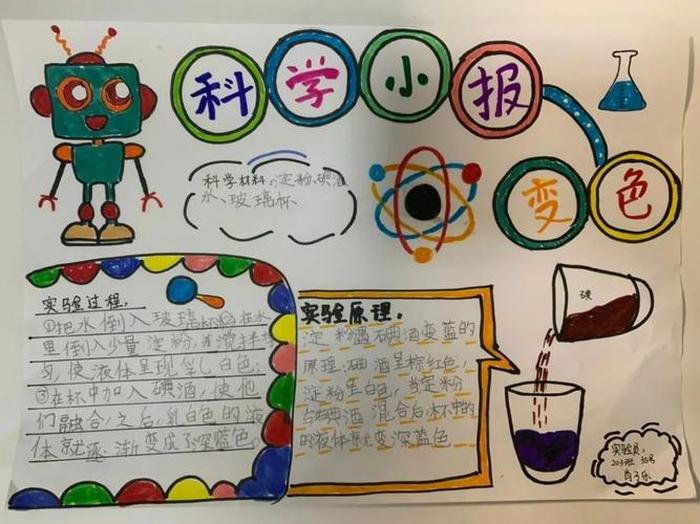 科学小报
变色
科学材料:淀粉、碘酒
水、玻璃杯
实验过程:
①把水倒入玻璃杯②在水
里倒入少量淀粉,并搅拌均
匀,使液体呈现乳白色;
③在杯中加入碘酒,使他
们融合,之后,乳白色的液
体就逐渐变成了深蓝色。
实验原理:
淀粉遇碘酒变蓝的
原理:碘酒呈棕红色,
淀粉呈白色,当淀粉
与碘酒混合后杯中的
的液体就变深蓝色
碘
实验员: